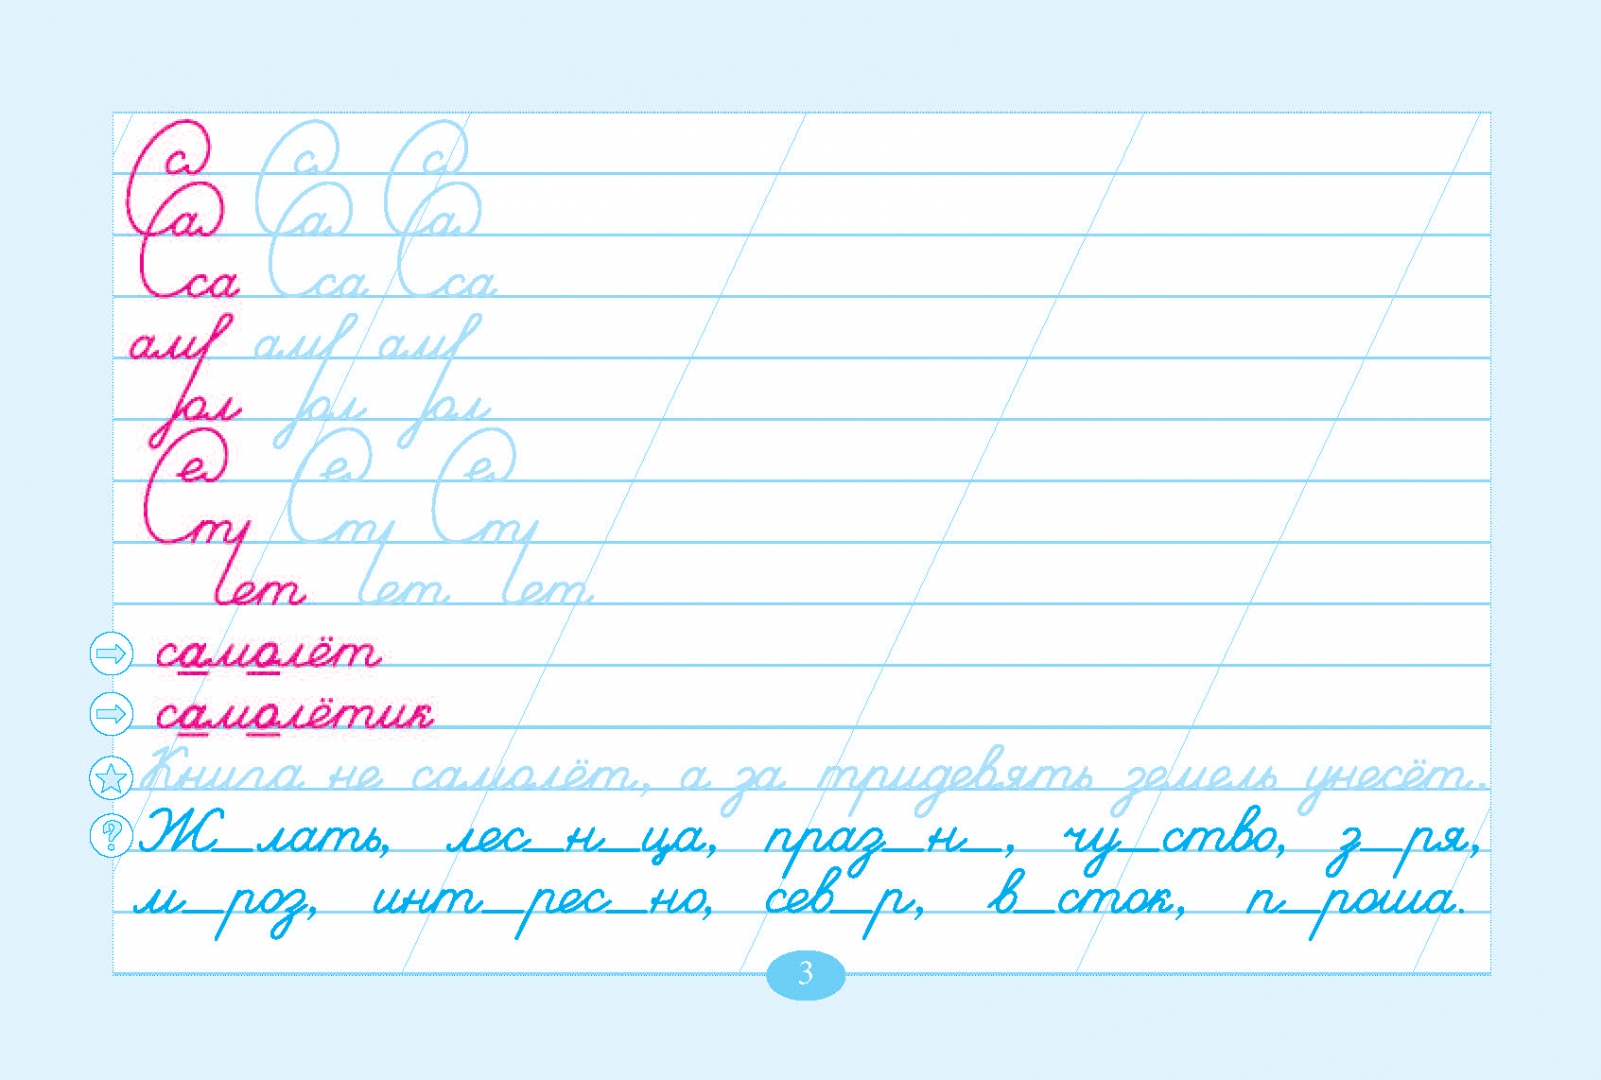 Са Са Са
Са Са Са
са са са
ам ам ам
ол ол ол
Се Се Се
т т т
лет лет лет
самолёт
самолётик
Книга не самолёт, а за тридевять земель унесёт.
Ж_лать, лес_н_ца, праз_н_, чу_ство, з_ря,
м_роз, инт_рес_но, сев_р, в_сток, п_роша.
3